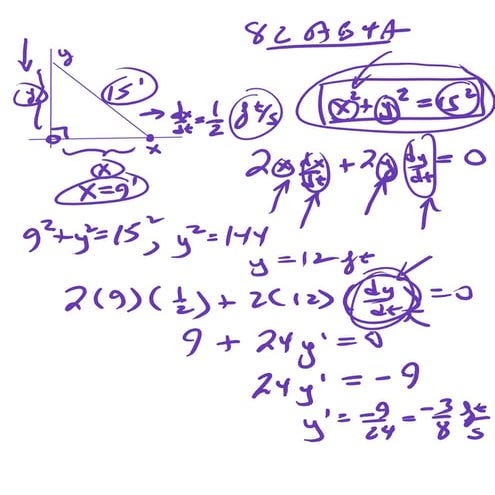 y
15'
y
dx/dt = 1/2 ft/s
x
x
x = 9'
x² + y² = 15²
2x dx/dt + 2y dy/dt = 0
9² + y² = 15², y² = 144
y = 12 ft
2(9)(1/2) + 2(12) dy/dt = 0
9 + 24y' = 0
24y' = -9
y' = -9/24 = -3/8 ft/s